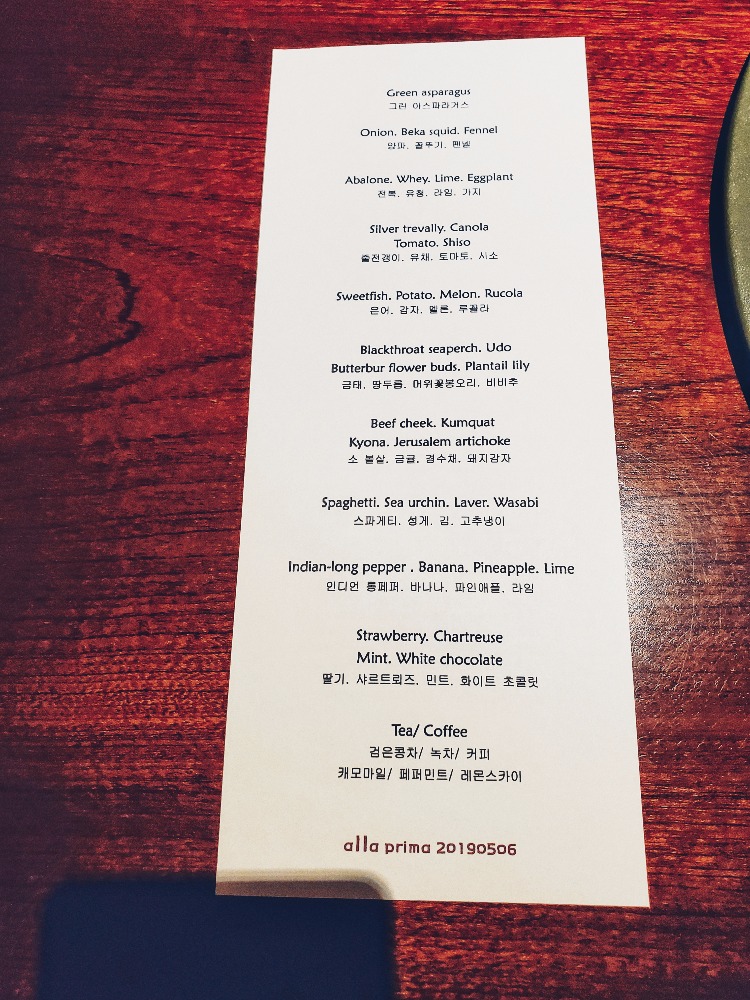 Green asparagus
그린 아스파라거스
Onion. Beka squid. Fennel
양파. 꼴뚜기. 펜넬
Abalone. Whey. Lime. Eggplant
전복. 유청. 라임. 가지
Silver trevally. Canola
Tomato. Shiso
흑점갱이. 유채. 토마토. 시소
Sweetfish. Potato. Melon. Rucola
은어. 감자. 멜론. 루꼴라
Blackthroat seaperch. Udo
Butterbur flower buds. Plantail lily
금태. 땅두릅. 머위꽃봉오리. 비비추
Beef cheek. Kumquat
Kyona. Jerusalem artichoke
소 볼살. 금귤. 경수채. 돼지감자
Spaghetti. Sea urchin. Laver. Wasabi
스파게티. 성게. 김. 고추냉이
Indian-long pepper . Banana. Pineapple. Lime
인디언 롱페퍼. 바나나. 파인애플. 라임
Strawberry. Chartreuse
Mint. White chocolate
딸기. 샤르트뢰즈. 민트. 화이트 초콜릿
Tea/ Coffee
검은콩차/ 녹차/ 커피
캐모마일/ 페퍼민트/ 레몬스카이
alla prima 20190506